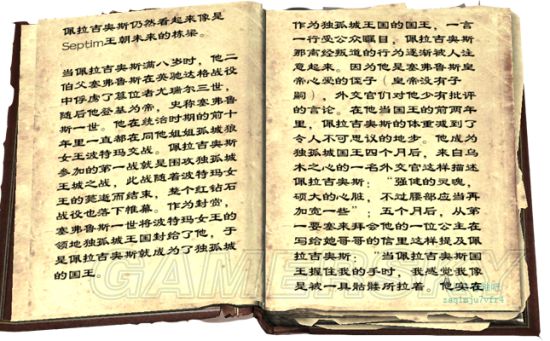 佩拉吉奥斯仍然看起来像是
Septim王朝未来的栋梁。
当佩拉吉奥斯满八岁时，他二
伯父塞弗鲁斯在英驰达格战役
中俘虏了篡位者尤瑞尔三世，
随后他登基为帝，史称塞弗鲁
斯一世。他在统治时期的前十
年里一直都在同他姐姐孤城狼
女王波特玛交战。佩拉吉奥斯
参加的第一战就是围攻独孤城
王城之战，此战随着波特玛女
王的薨逝而结束，整个红钻石
战役也落下帷幕。作为封赏，
塞弗鲁斯一世将波特玛女王的
领地独孤城王国封给了他，于
是佩拉吉奥斯就成为了独孤城
的国王。
作为独孤城王国的国王，一言
一行受公众瞩目，佩拉吉奥斯
那离经叛道的行为逐渐被人注
意起来。因为他是塞弗鲁斯皇
帝心爱的侄子（皇帝没有子
嗣），外交官们对他少有批评
的言论。在他当国王的前两年
里，佩拉吉奥斯的体重减到了
令人不可思议的地步。他成为
独孤城国王四个月后，来自乌
木之心的一名外交官这样描述
佩拉吉奥斯：“强健的灵魂，
硕大的心脏，不过腰部应当再
加宽一些”；五个月后，从第
一要塞来拜会他的一位公主在
写给她哥哥的信里这样提及佩
拉吉奥斯：“当佩拉吉奥斯国
王握住我的手时，我感觉我像
是被一具骷髅所拉着。他实在
GAMERSKY
zaqimju7vfr4